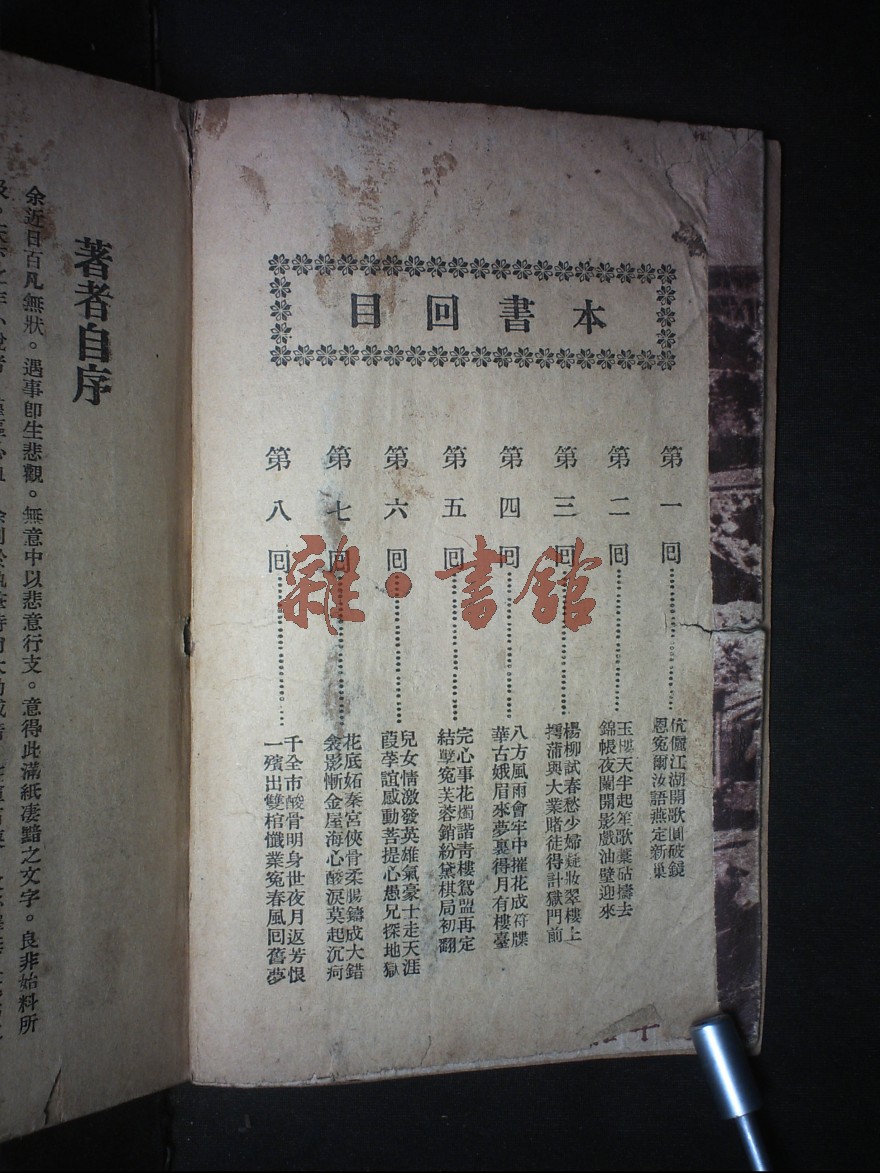 本書回目
第一回
伉儷江湖開歌圓破鏡
恩寃爾汝語燕定新巢
第二回
玉樓天半起笙歌藁砧擣去
錦帳夜闌開影戲油壁迎來
第三回
楊柳試春愁少婦凝妝翠樓上
摴蒲與大業賭徒得計獄門前
第四回
八方風雨會牢中摧花成符牒
華古娥眉來夢裏得月有樓臺
第五回
完心事花燭諧青樓鴛盟再定
結孽寃芙蓉銷紛黛棋局初翻
第六回
兒女情激發英雄氣豪士走天涯
葭莩誼感動菩提心愚兄探地獄
第七回
花底妬秦宮俠骨柔腸鑄成大錯
衾影慚金屋海心酸淚莫起沉疴
第八回
千全市酸骨明身世夜月返芳恨
一殯出雙棺懺業寃春風回舊夢
著者自序
余近日百凡無狀。遇事卽生悲觀。無意中以悲意行支。意得此滿紙凄黯之文字。良非始料所
雜·書館